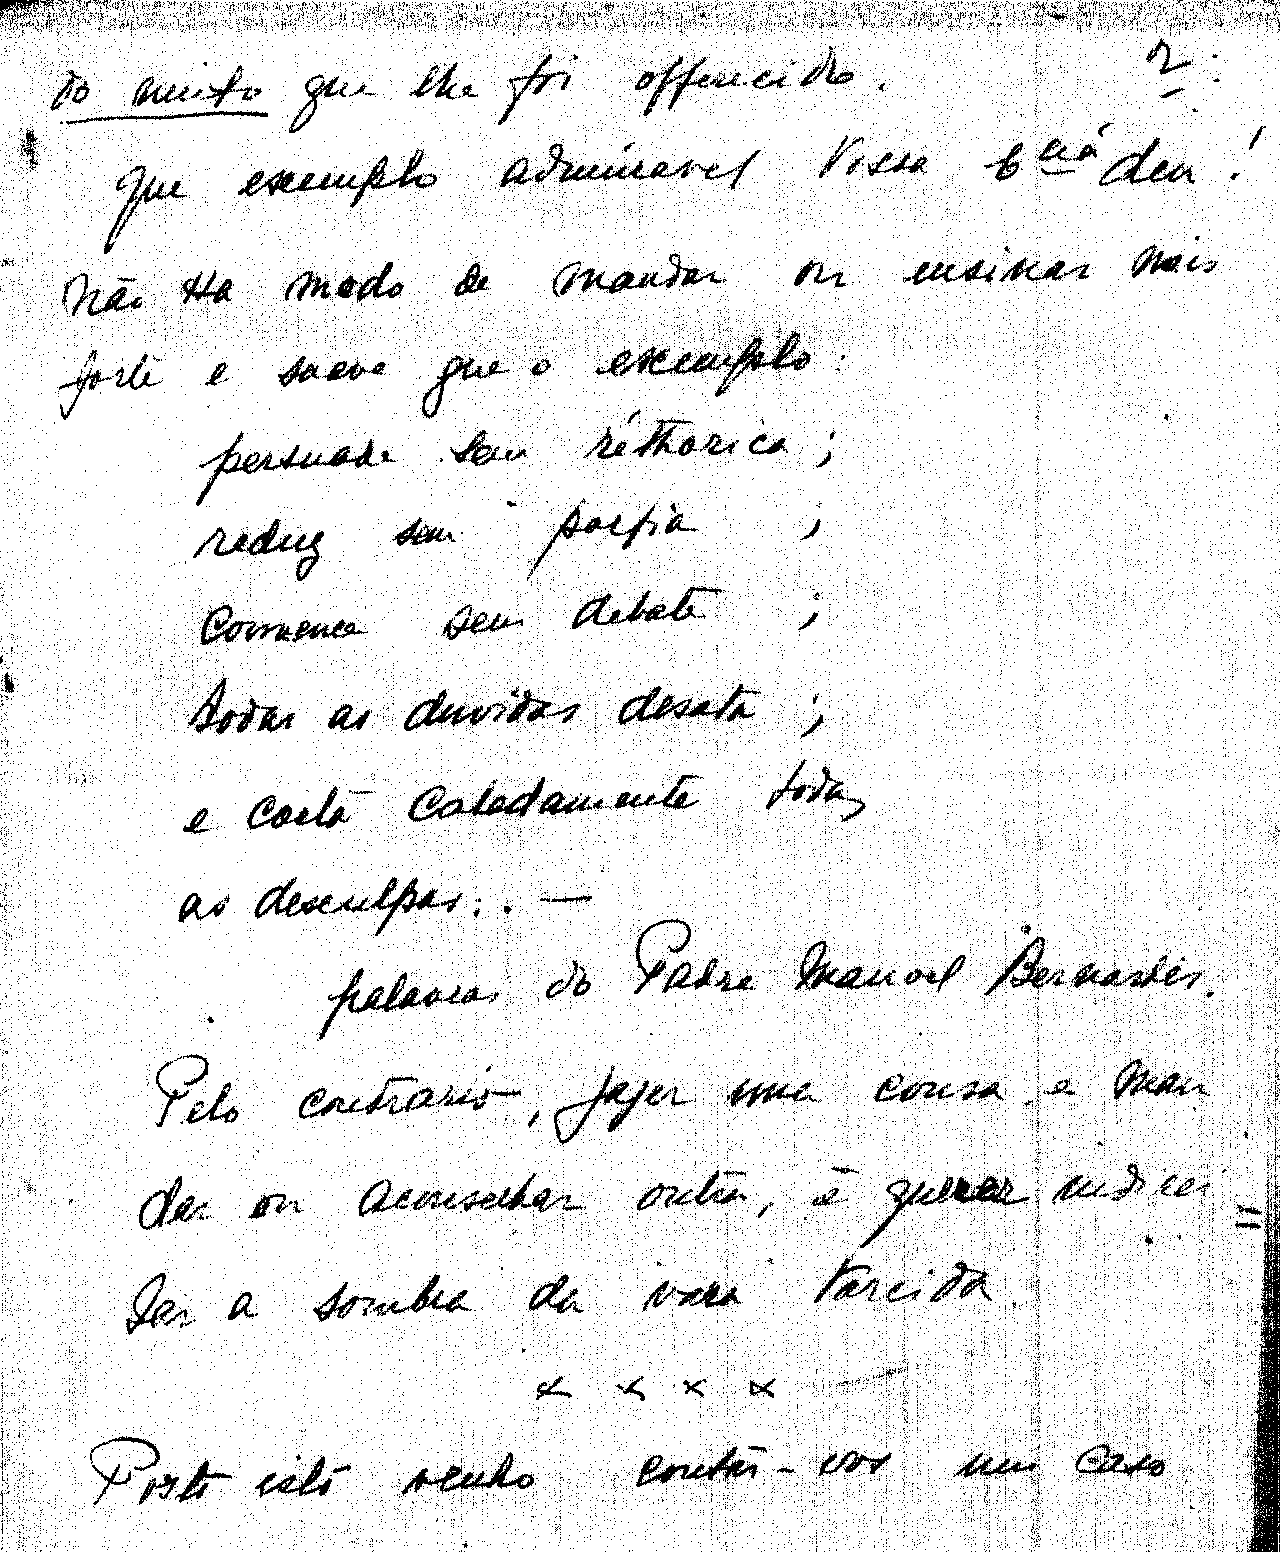 2.
do muito que lhe foi offerecido.
Que exemplo admiravel Vossa Excia deu!
Não Ha modo de mandar ou ensinar mais
forte e suave que o exemplo:
persuade sem réthorica;
reduz sem porfia;
Convence sem debate;
todas as duvidas desata;
e corta Caladamente todas
as desculpas... —
palavras do Padre Manoel Bernardes.
Pelo contrario, fazer uma cousa e man
dar ou aconselhar outra, é querer indirei
tar a sombra da vara torcida.
x x x x
Posto isto venho contar-vos um caso